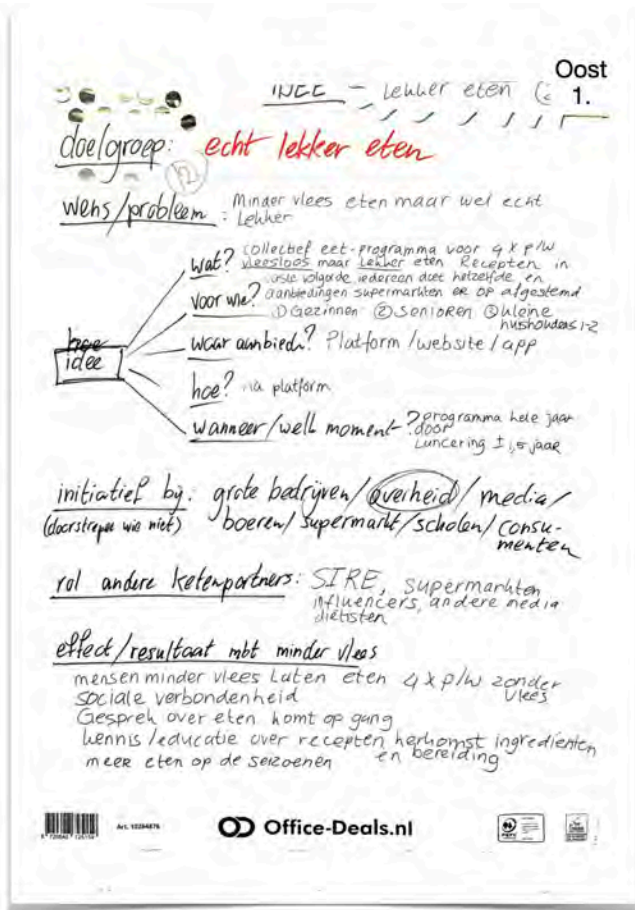 Oost
1.
INCC - Lekker eten
doelgroep: echt lekker eten
12
wens/probleem : Minder vlees eten maar wel echt
Lekker
wat? Collectief eet-programma voor 4 x p/w
vleesloos maar Lekker eten Recepten in
vaste volgorde iedereen doet hetzelfde en
voor wie? aanbiedingen supermarkten er op afgestemd
① Gezinnen ② Senioren ③ kleine
huishoudens 1-2
idee
waar aanbieden? Platform/website/app
hoe? via platform
wanneer/welk moment? programma hele jaar
door
Luncering ± 1,5 jaar
initiatief bij: grote bedrijven/overheid/media/
(doorstrepen wie niet) boeren/supermarkt/scholen/consu-
menten
rol andere ketenpartners: SIRE, supermarkten
influencers, andere media
diëtisten
effect/resultaat mbt minder vlees
mensen minder vlees Laten eten 4 x p/w zonder
vlees
sociale verbondenheid
Gesprek over eten komt op gang
kennis/educatie over recepten herkomst ingredienten
en bereiding
meer eten op de seizoenen
Office-Deals.nl